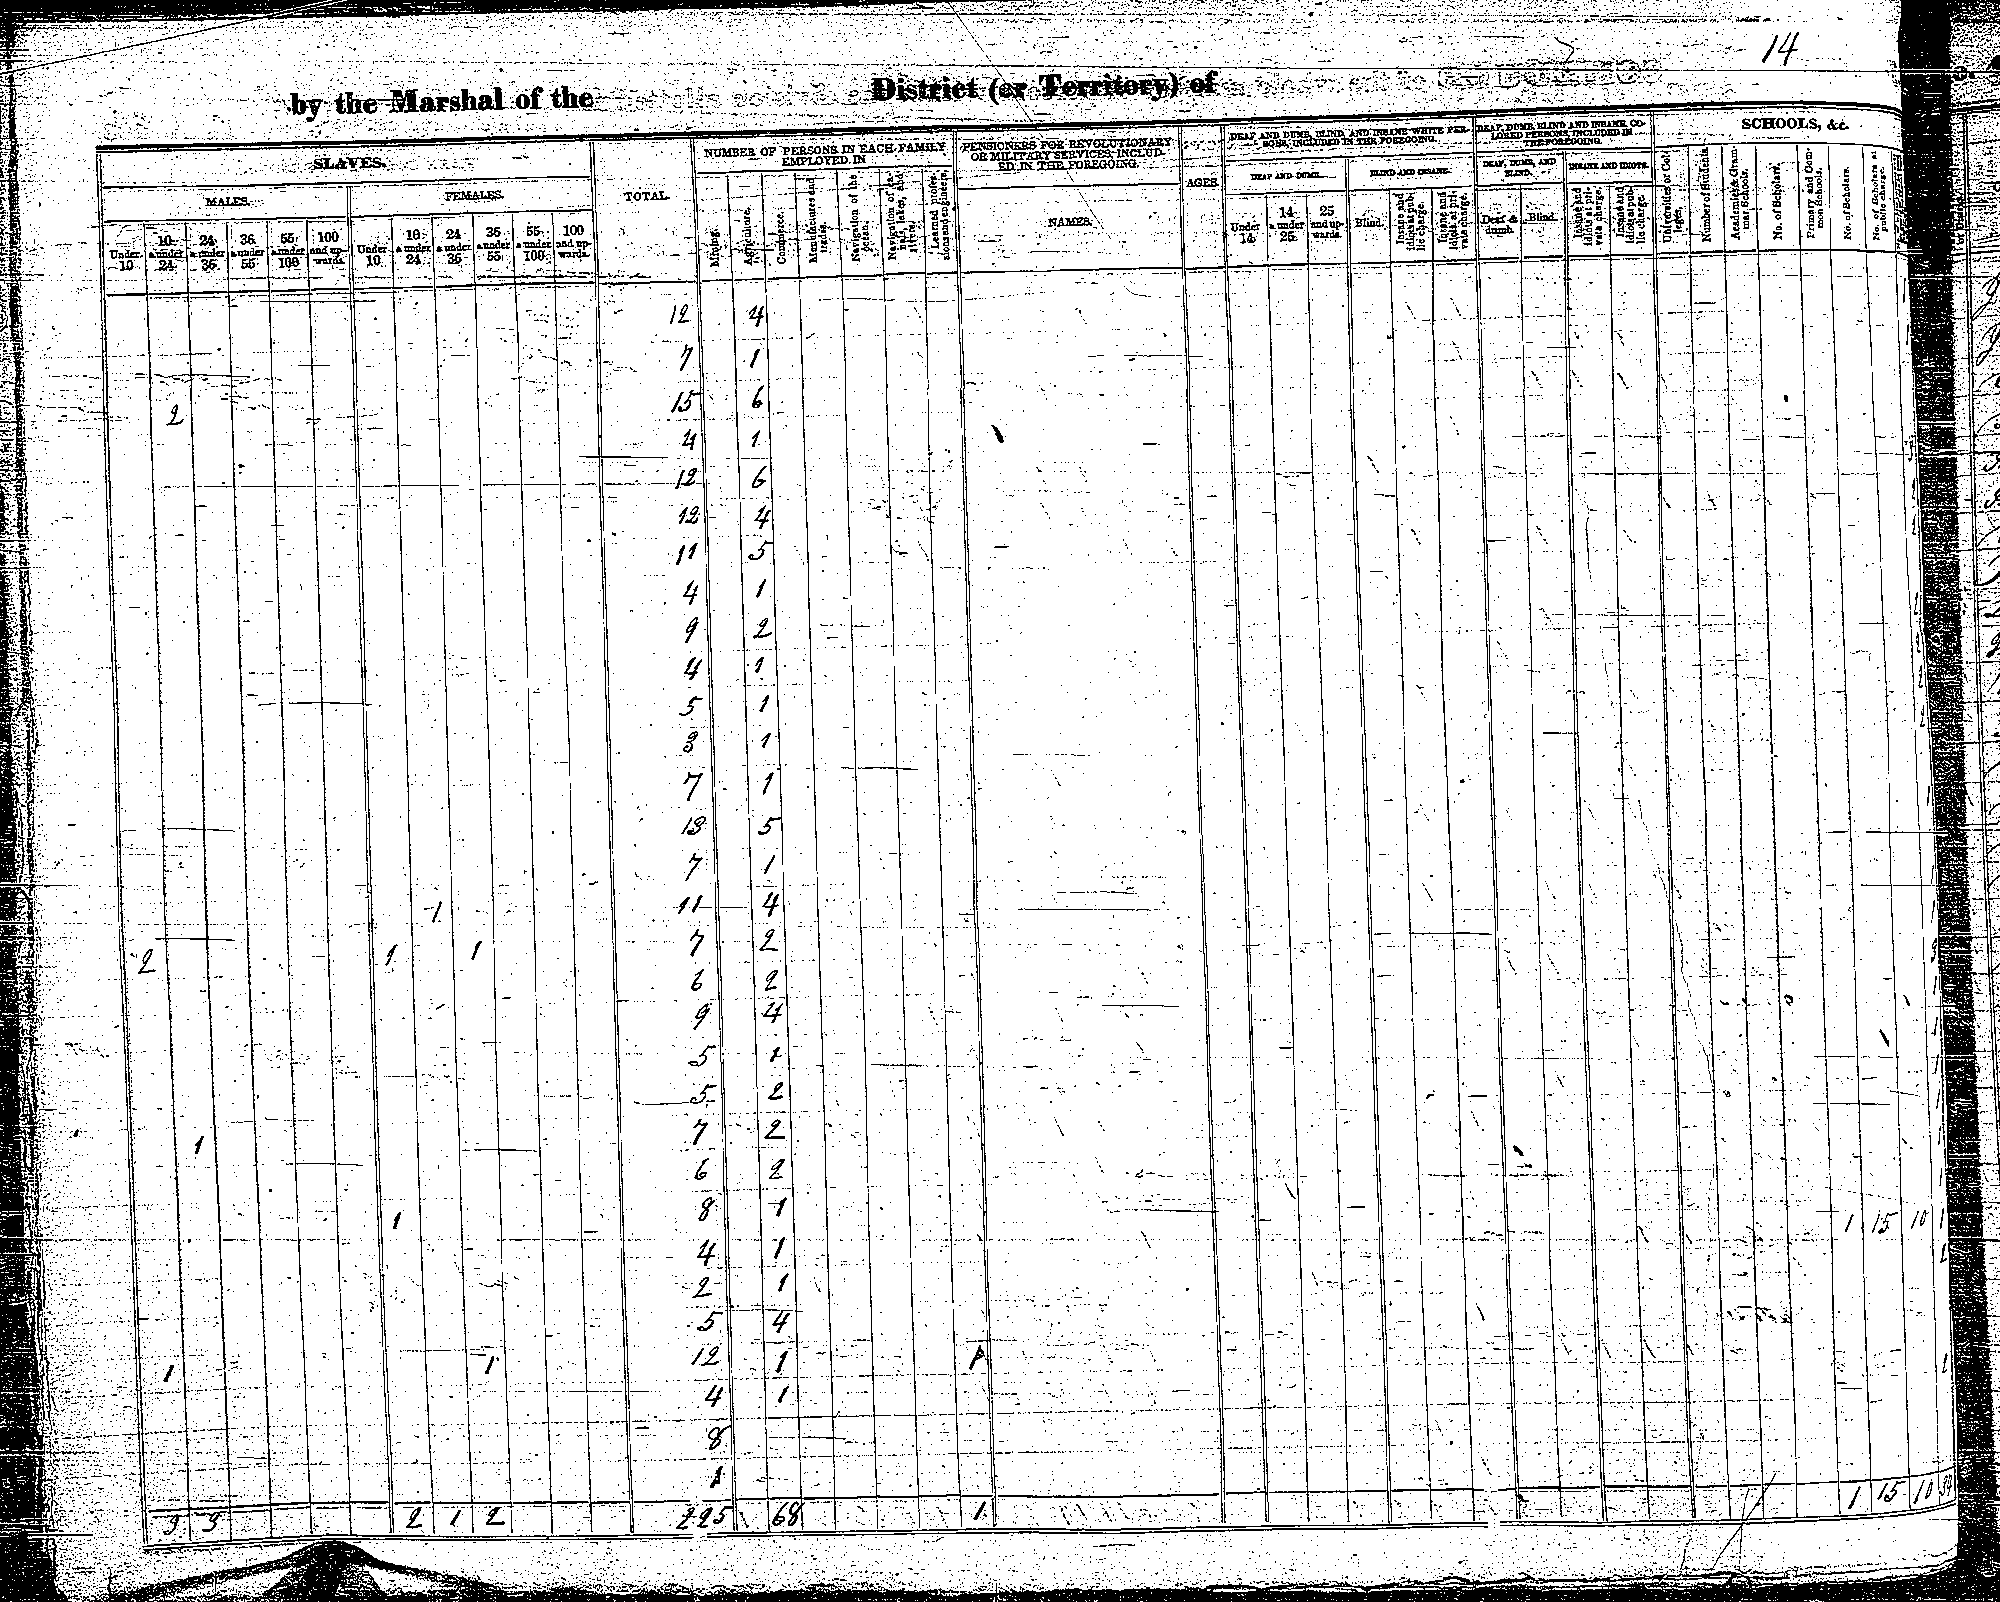 14
by the Marshal of the District (or Territory) of
SLAVES. TOTAL. NUMBER OF PERSONS IN EACH FAMILY EMPLOYED IN PENSIONERS FOR REVOLUTIONARY OR MILITARY SERVICES, INCLUDED IN THE FOREGOING. AGES. DEAF AND DUMB, BLIND AND INSANE WHITE PERSONS, INCLUDED IN THE FOREGOING. DEAF, DUMB, BLIND AND INSANE COLORED PERSONS, INCLUDED IN THE FOREGOING. SCHOOLS, &c.
MALES. FEMALES. NAMES. DEAF AND DUMB. BLIND AND INSANE. DEAF, DUMB, AND BLIND. INSANE AND IDIOTS.
Under 10 10 a under 24 24 a under 36 36 a under 55 55 a under 100 100 and upwards. Under 10 10 a under 24 24 a under 36 36 a under 55 55 a under 100 100 and upwards. Mining. Agriculture. Commerce. Manufactures and trades. Navigation of the ocean. Navigation of canals, lakes, and rivers. Learned profes. sions and engineers. Under 14. 14 a under 25. 25 and upwards. Blind. Insane and idiots at public charge. Insane and idiots at private charge. Deaf & dumb. Blind. Insane and idiots at private charge. Insane and idiots at public charge. Universities or Colleges. Number of Students. Academies & Grammar Schools. No. of Scholars. Primary and Common Schools. No. of Scholars. No. of Scholars at public charge.
12 4
7 1
2 15 6
4 1
12 6
12 4
11 5
4 1
9 2
4 1
5 1
3 1
7 1
13 5
7 1
1 11 4
2 1 1 7 2
6 2
9 4
5 1
5 2
1 7 2
6 2
1 8 1 1 15 10 1
4 1
2 1
5 4
1 1 12 1 1 1
4 1
8
1
3 3 2 1 2 225 68 1 1 15 10